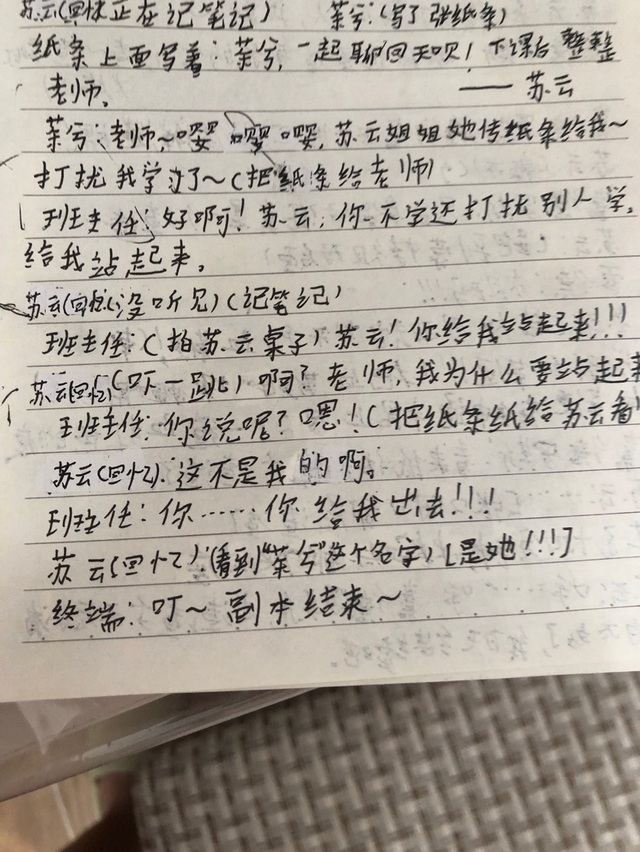 苏云(回忆正在记笔记)　茶兮:(写了张纸条)
纸条上面写着:茶兮,一起聊回天呗!下课后整整
老师。——苏云
茶兮:老师~嘤嘤嘤,苏云姐姐她传纸条给我~
打扰我学习了~(把纸条给老师)
班主任:好啊!苏云,你不学还打扰别人学。
给我站起来。
苏云(回忆)(没听见)(记笔记)
班主任:(拍苏云桌子)苏云!你给我站起来!!!
苏云(回忆)(吓一跳)啊?老师,我为什么要站起来
班主任:你说呢?嗯!(把纸条纸给苏云看
苏云(回忆):这不是我的啊。
班主任:你……你给我出去!!!
苏云(回忆):(看到“茶兮”这个名字)[是她!!!]
终端:叮~副本结束~